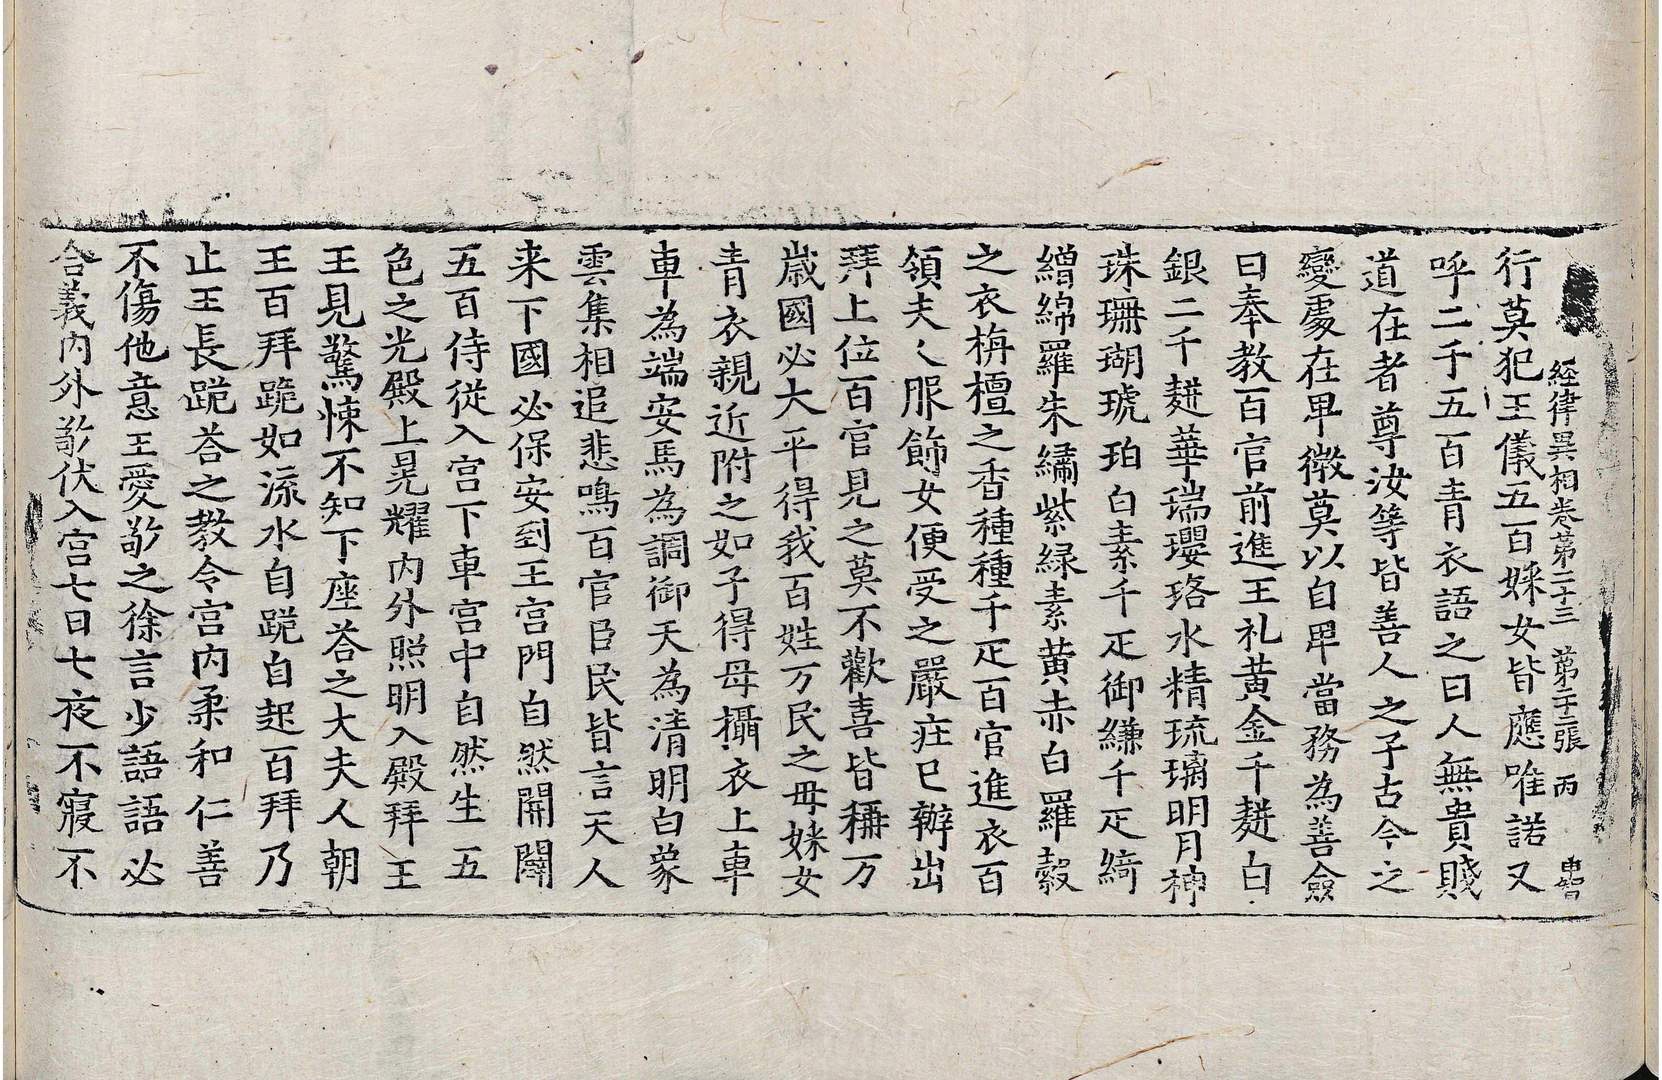 経律異相巻第二十三 第二十二張 丙 申智
行莫犯王儀五百婇女皆應唯諾又
呼二千五百青衣語之曰人無貴賤
道在者尊汝等皆善人之子古今之
變處在卑微莫以自卑當務為善僉
曰奉教百官前進王礼黄金千䥫白
銀二千䥫華瑞瓔珞水精琉璃明月神
珠珊瑚琥珀白素千疋御縑千疋綺
繒綿羅朱繡紫緑素黄赤白羅縠
之衣栴檀之香種種千疋百官進衣百
領夫人服飾女便受之嚴庄已辦出
拜上位百官見之莫不歡喜皆稱万
歳國必大平得我百姓万民之母婇女
青衣親近附之如子得母攝衣上車
車為端安馬為調御天為清明白象
雲集相追悲鳴百官臣民皆言天人
来下國必保安到王宮門自然開闢
五百侍從入宮下車宮中自然生五
色之光殿上晃耀内外照明入殿拜王
王見驚悚不知下座荅之大夫人朝
王百拜跪如流水自跪自起百拜乃
止王長跪荅之教令宮内柔和仁善
不傷他意王愛敬之徐言少語語必
合義内外敬伏入宮七日七夜不寢不